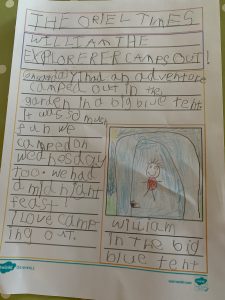 THE ORIEL TIMES
WILLIAM THE
EXPLORERER CAMPS OUT!
I had an adventure
I camped out in the
garden in a big blue tent
It was so much
fun we
camped on
wednesday
too. we had
a midnight
feast!
I love camp
ing out.
William
in the big
blue tent
twinkl
twinkl